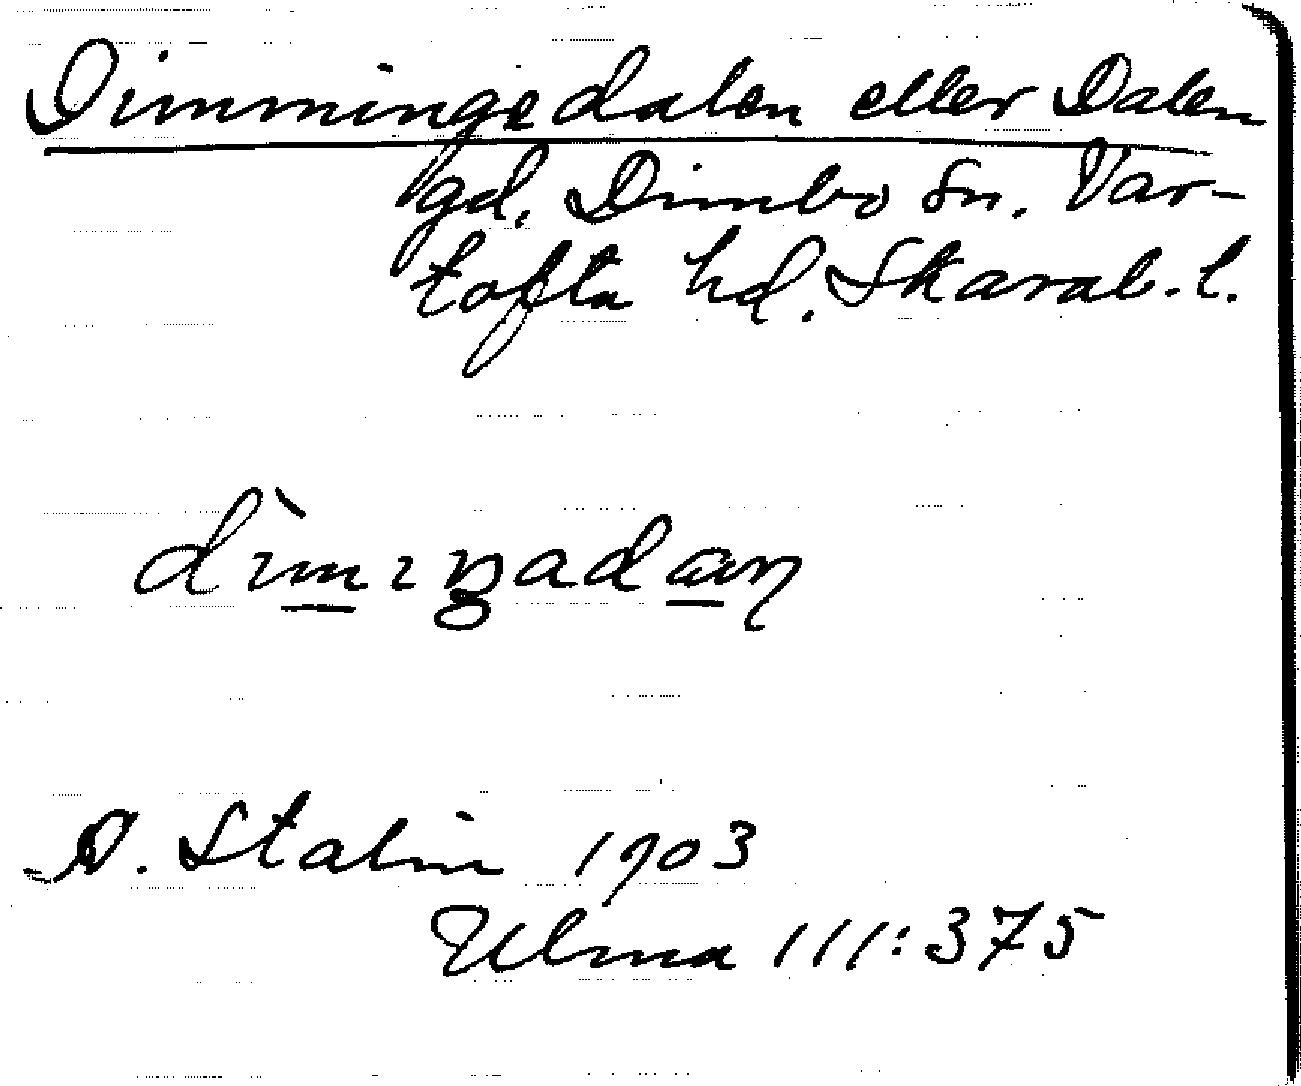 Dimmingedalen eller Dalen
gd. Dimbo sn. Var-
tofta hd. Skarab. l.
A. Stalin 1903
Ulma 111:375